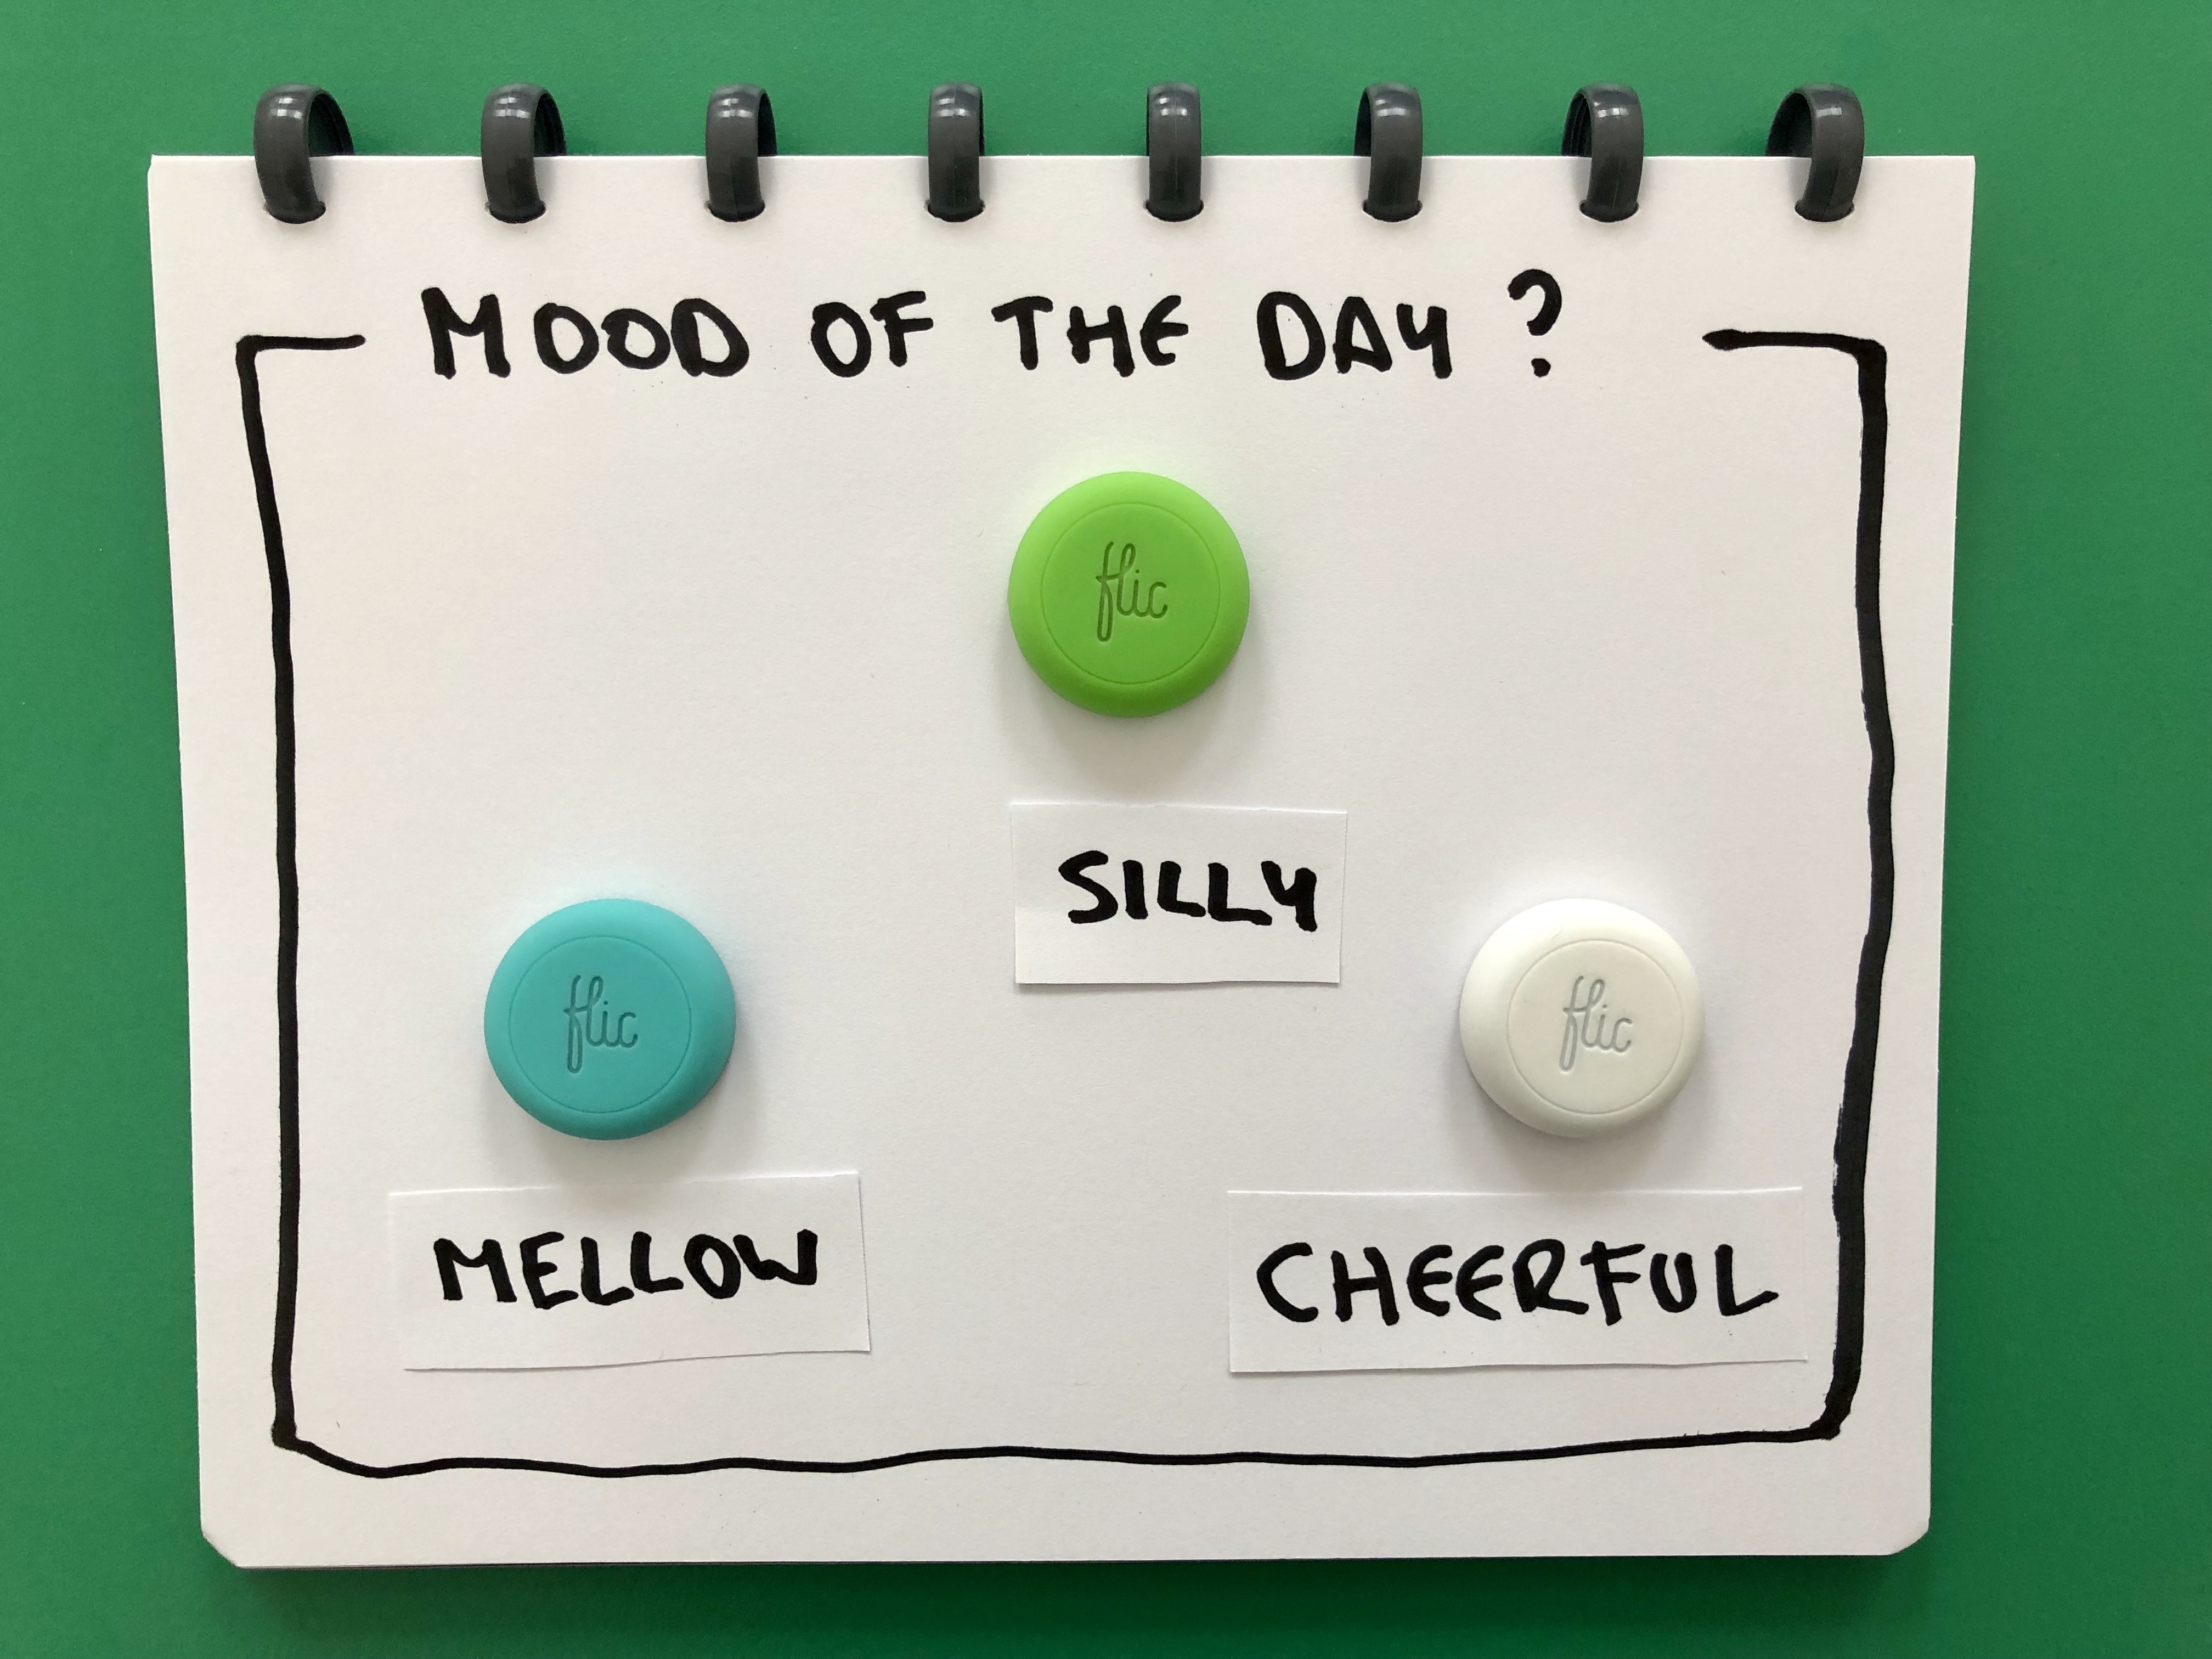 MOOD OF THE DAY ?
flic
SILLY
flic
MELLOW
flic
CHEERFUL